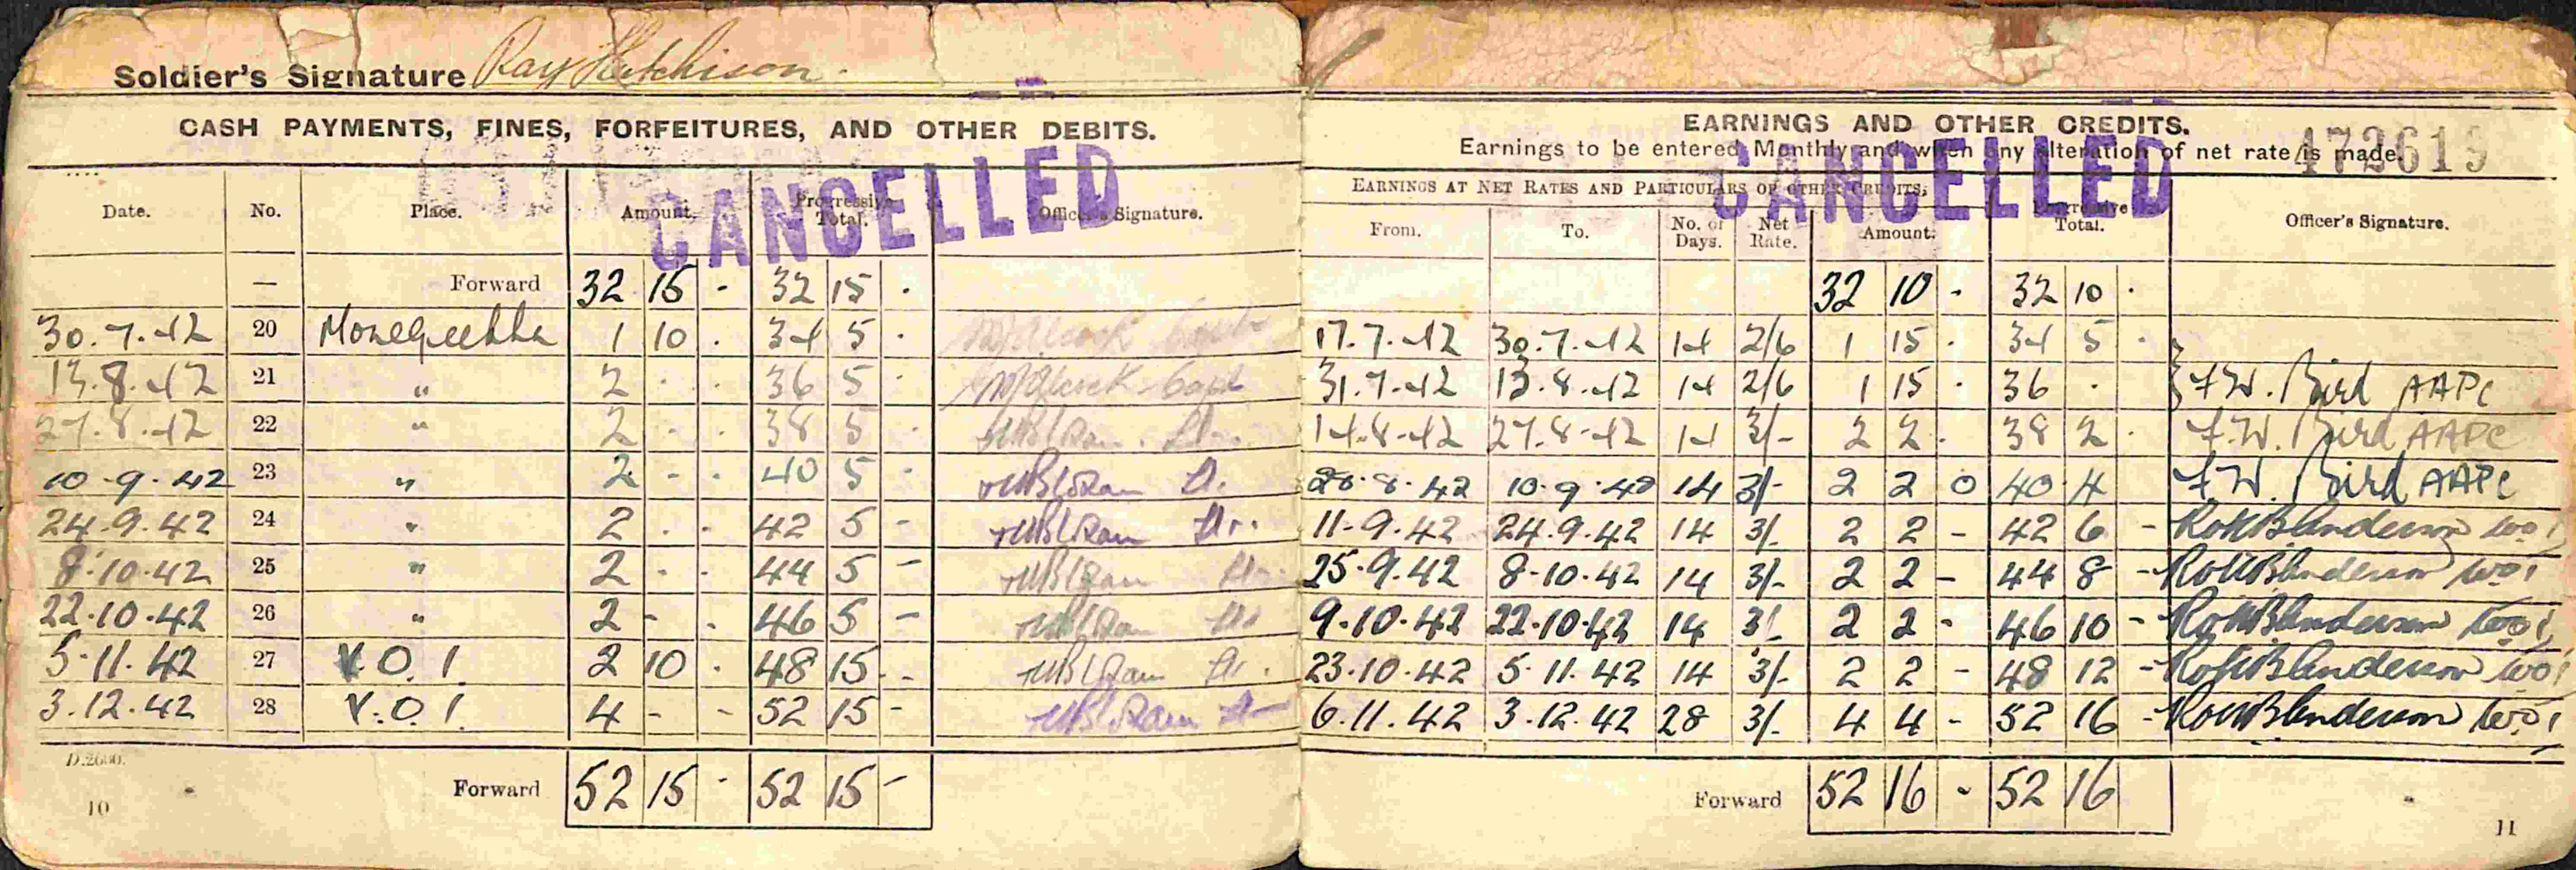 Soldier's Signature Ray Hutchison
CASH PAYMENTS, FINES, FORFEITURES, AND OTHER DEBITS.
CANCELLED
Date. No. Place. Amount. Progressive Total. Officer's Signature.
— Forward 32 15 - 32 15 .
30.7.42 20 1 10 . 34 5 .
13.8.42 21 " 2 . . 36 5 .
27.8.42 22 " 2 - . 38 5 .
10.9.42 23 " 2 - . 40 5 -
24.9.42 24 " 2 . . 42 5 -
8.10.42 25 " 2 - . 44 5 -
22.10.42 26 " 2 - . 46 5 -
5.11.42 27 V.O.1. 2 10 . 48 15 -
3.12.42 28 V.O.1. 4 - - 52 15 -
D.2600.
Forward 52 15 - 52 15 -
10
EARNINGS AND OTHER CREDITS.
Earnings to be entered Monthly and when any alteration of net rate is made.
472619
CANCELLED
EARNINGS AT NET RATES AND PARTICULARS OF OTHER CREDITS.
From. To. No. of Days. Net Rate. Amount. Progressive Total. Officer's Signature.
32 10 - 32 10 .
17.7.42 30.7.42 14 2/6 1 15 . 34 5 .
31.7.42 13.8.42 14 2/6 1 15 . 36 . F.W. Bird AAPC
14.8.42 27.8.42 14 3/- 2 2 . 38 2 . F.W. Bird AAPC
28.8.42 10.9.42 14 3/- 2 2 0 40 4 F.W. Bird AAPC
11-9.42 24.9.42 14 3/- 2 2 - 42 6 - WO1
25.9.42 8-10.42 14 3/- 2 2 - 44 8 - WO1
9.10.42 22.10.42 14 3/- 2 2 - 46 10 - WO1
23.10.42 5.11.42 14 3/- 2 2 - 48 12 - WO1
6.11.42 3.12.42 28 3/- 4 4 - 52 16 - WO1
Forward 52 16 - 52 16
11